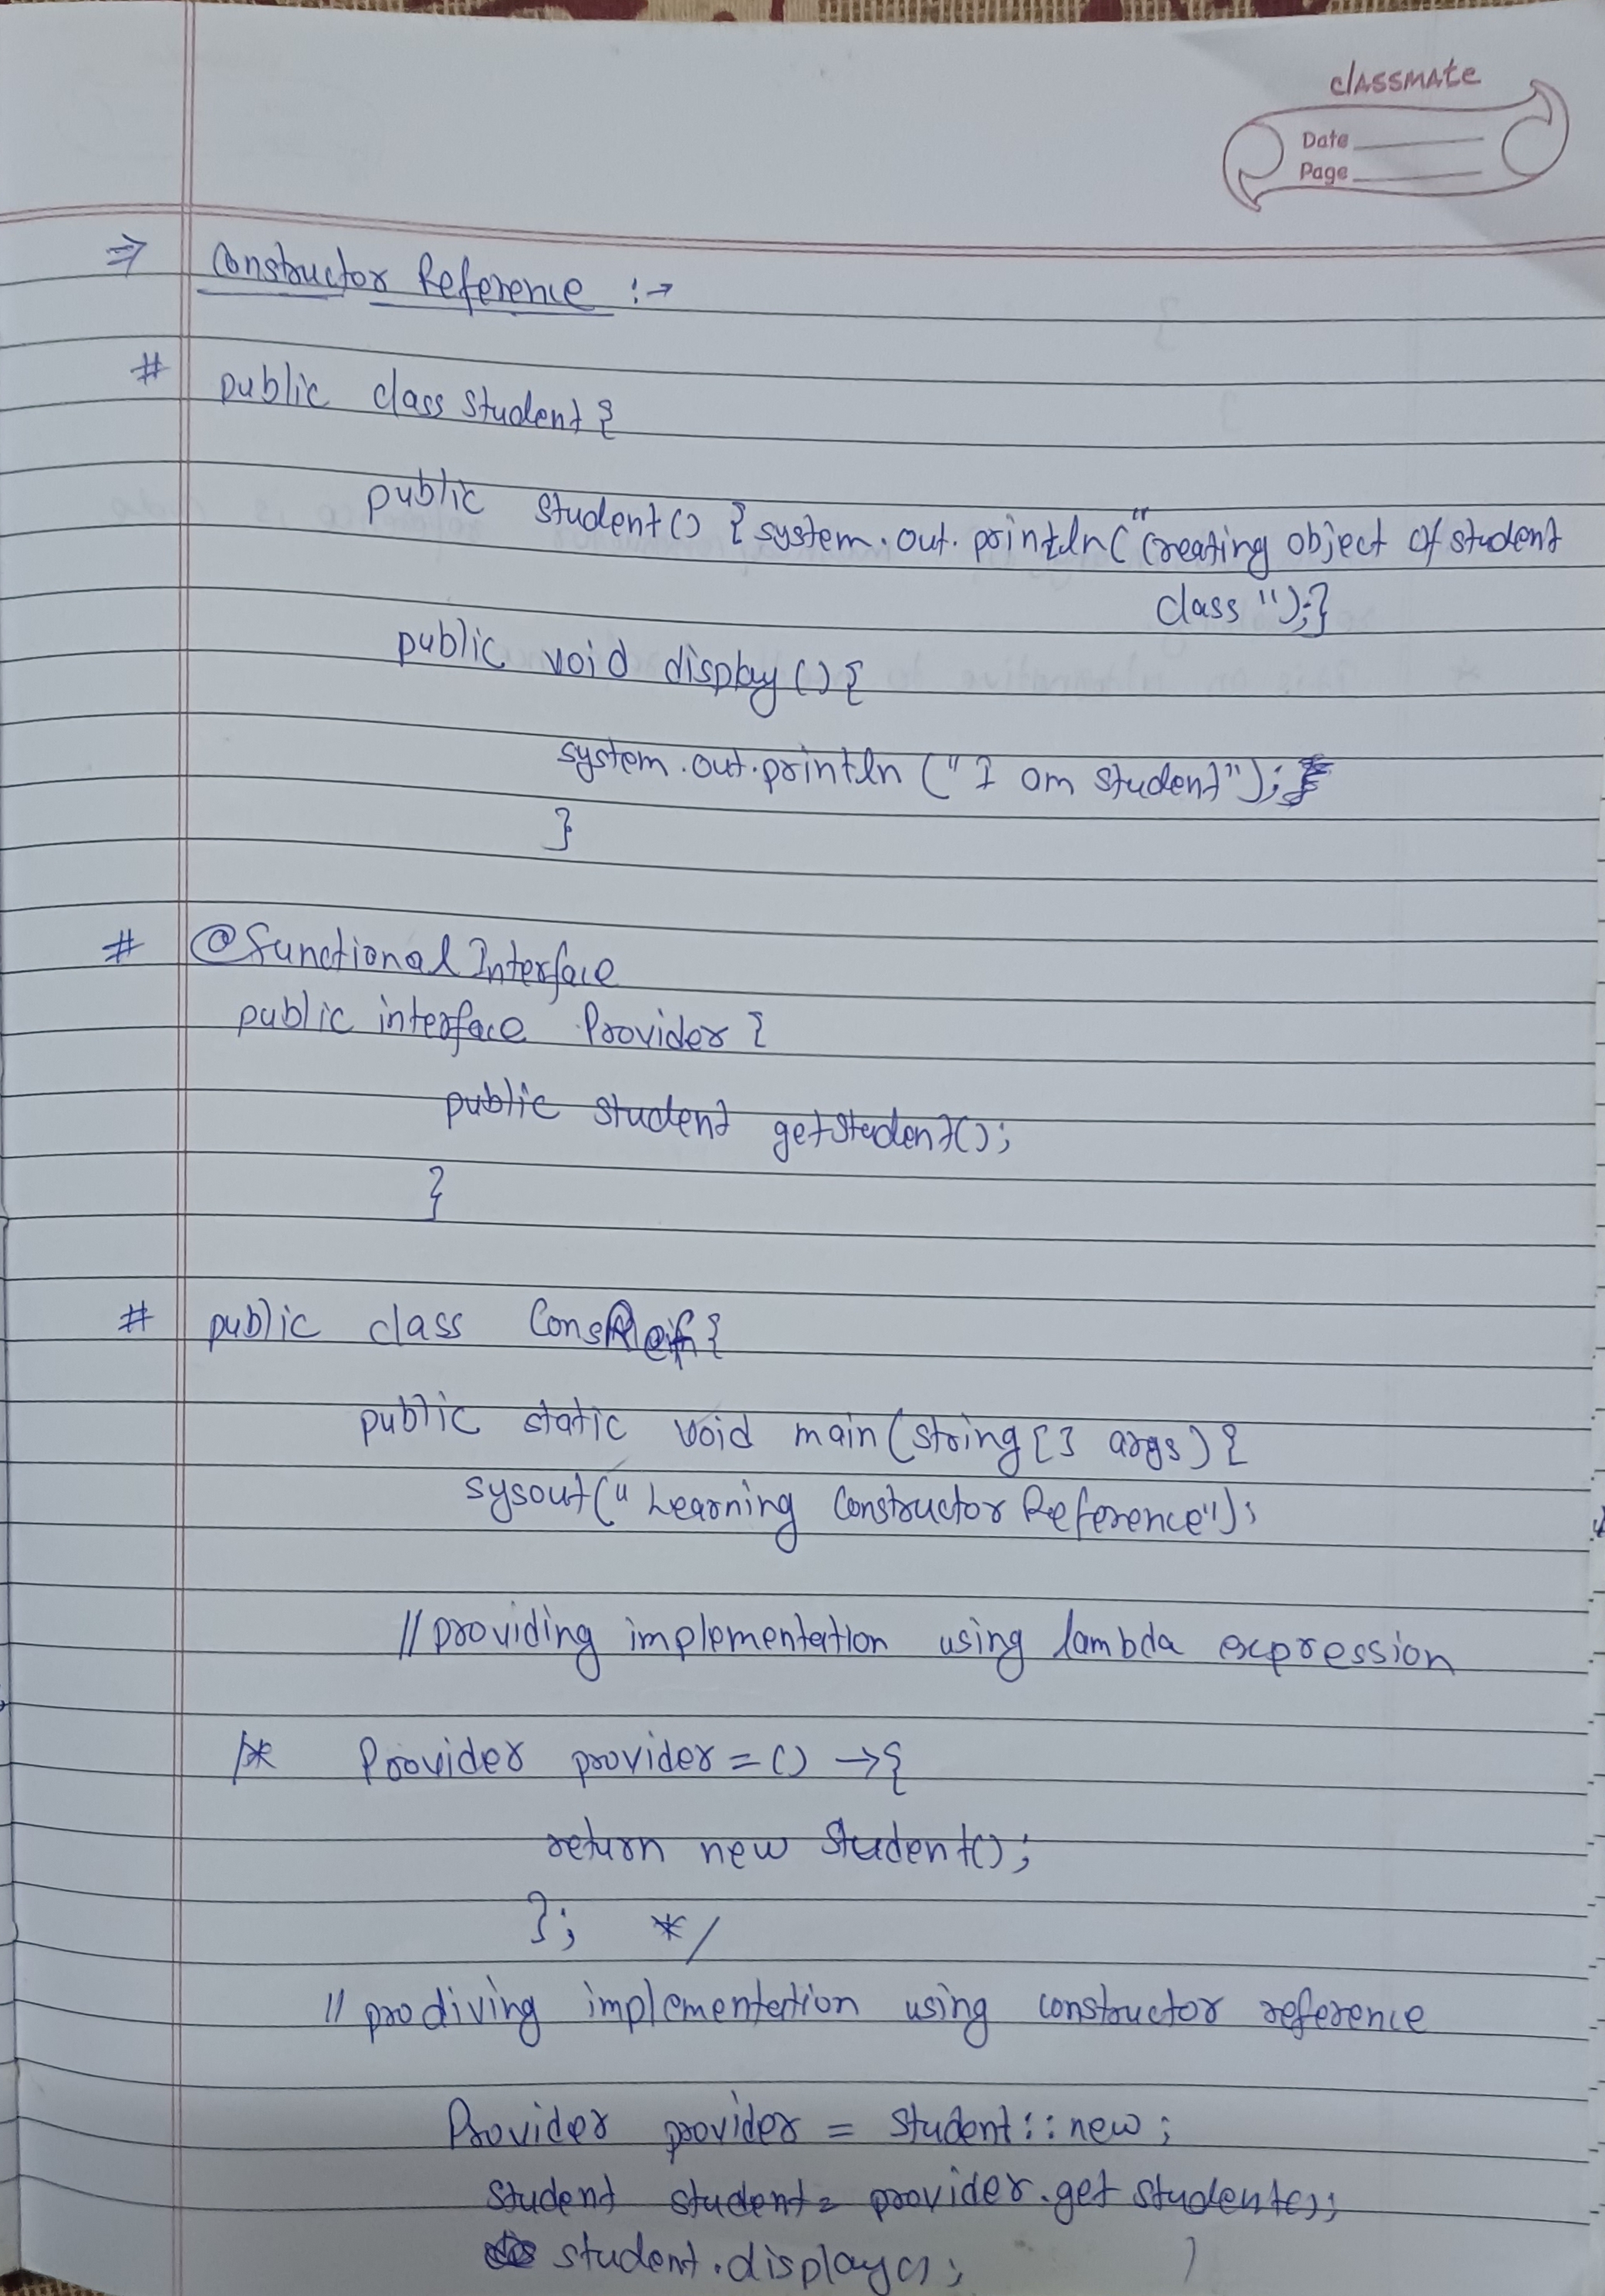 classmate
Date
Page
⇒ Constructor Reference :→
# public class Student {
public Student() { system.out.println("Creating object of student
class");}
public void display () {
system.out.println ("I am student");
}
# @FunctionalInterface
public interface Provider {
public student getstudent();
}
# public class {
public static void main (string [] args) {
sysout(" Learning Constructor Reference");
// providing implementation using lambda expression
/* Provider provider = () → {
return new Student();
}; */
// prodiving implementation using constructor reference
Provider provider = Student::new;
Student student = provider.get student();
student.display();